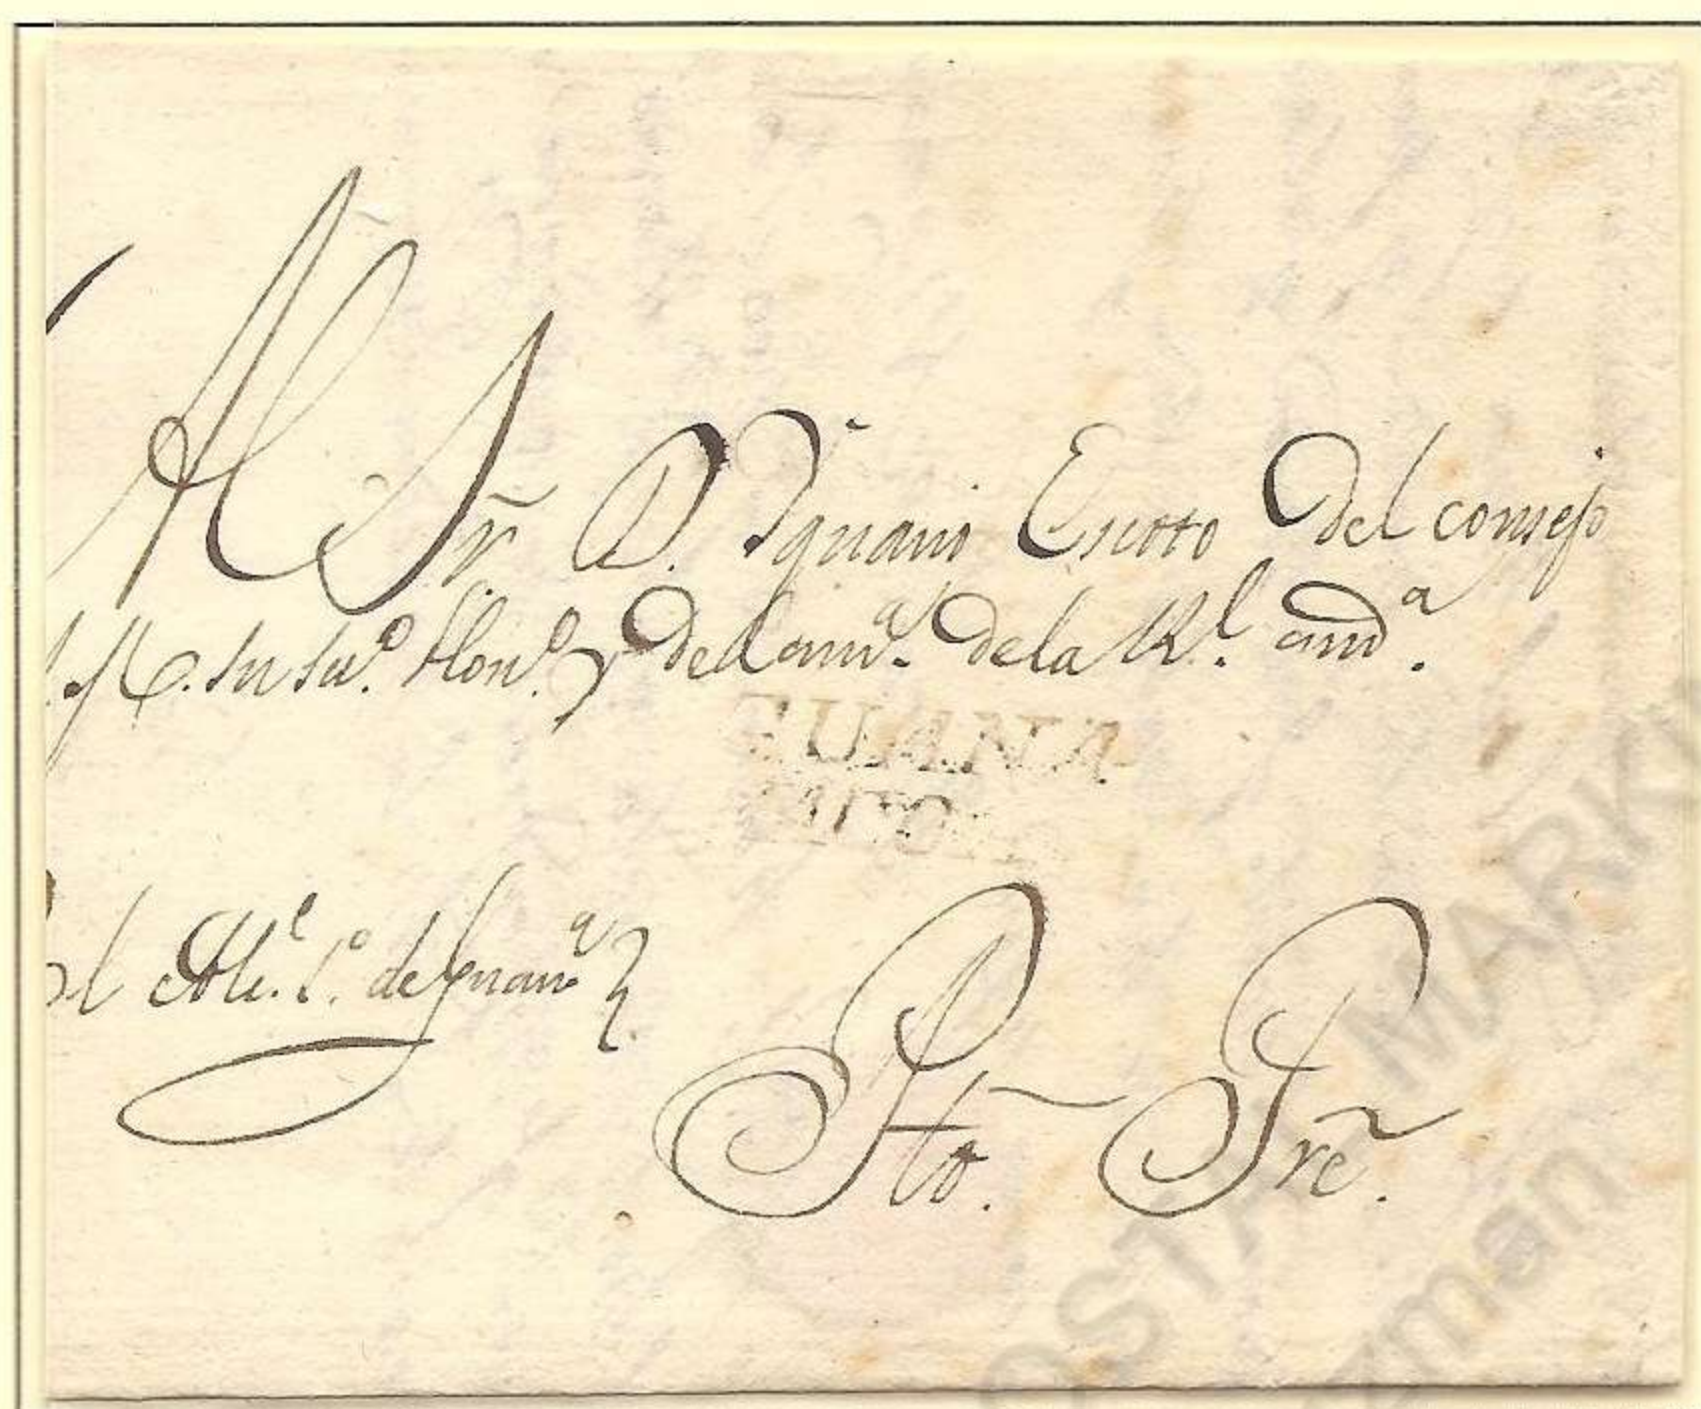 Al Sr. D. Ignacio Escoto Del consejo
S. M. su Sec.º Hon.º y Del cam.ª De la R.l aud.ª
GUANA
El Alc.e 1.º de Guan.ª
Pto. Pre.
OSTAL MARK
zman